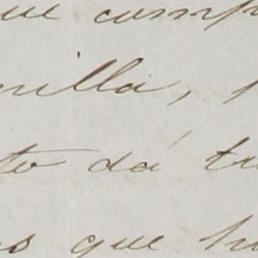 que comp
nilla,
to dá tr
s que